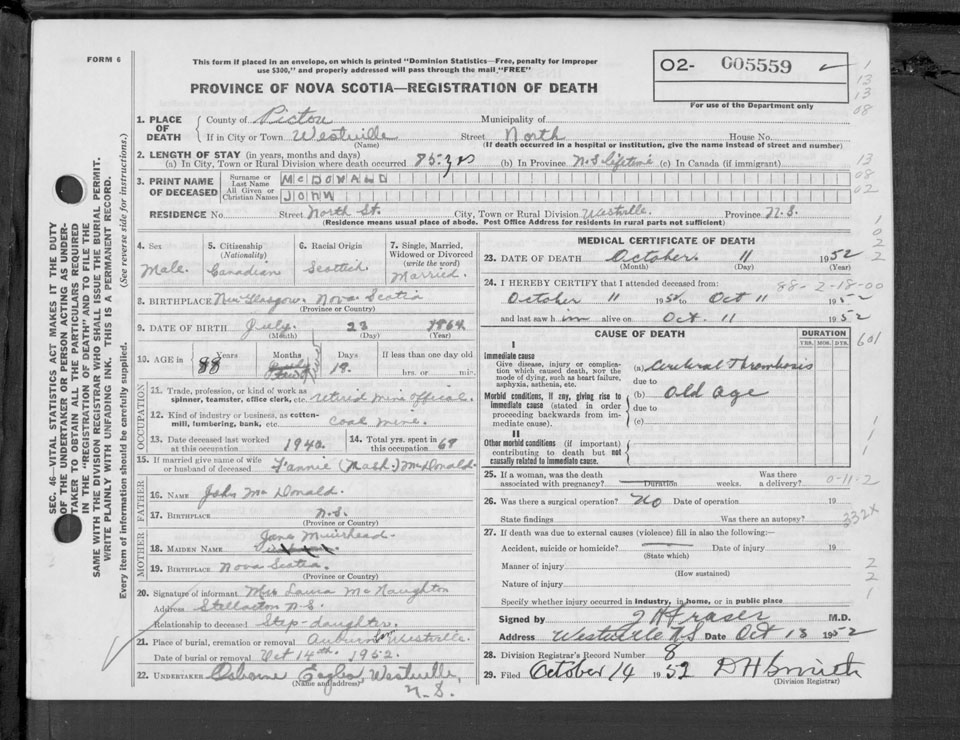 FORM 6
This form if placed in an envelope, on which is printed "Dominion Statistics—Free, penalty for improper
use $300," and properly addressed will pass through the mail "FREE"
PROVINCE OF NOVA SCOTIA—REGISTRATION OF DEATH
O2- G05559
For use of the Department only
1. PLACE OF DEATH
County of Pictou Municipality of
If in City or Town Westville Street North House No.
(Name) (If death occurred in a hospital or institution, give the name instead of street and number)
2. LENGTH OF STAY (in years, months and days)
(a) In City, Town or Rural Division where death occurred 85 yrs (b) In Province N.S lifetime (c) In Canada (if immigrant)
3. PRINT NAME OF DECEASED
Surname or Last Name McDONALD
All Given or Christian Names JOHN
RESIDENCE No. Street North St. City, Town or Rural Division Westville. Province N.S.
(Residence means usual place of abode. Post Office Address for residents in rural parts not sufficient)
4. Sex Male.
5. Citizenship (Nationality) Canadian
6. Racial Origin Scottish
7. Single, Married, Widowed or Divorced (write the word) Married.
8. BIRTHPLACE New Glasgow. Nova Scotia
(Province or Country)
9. DATE OF BIRTH July. 23 1864
(Month) (Day) (Year)
10. AGE in 88 Years Months Days 19. If less than one day old
hrs. or min.
OCCUPATION
11. Trade, profession, or kind of work as
spinner, teamster, office clerk, etc. retired mine official.
12. Kind of industry or business, as cotton-
mill, lumbering, bank, etc. Coal mine.
13. Date deceased last worked at this occupation 1940.
14. Total yrs. spent in this occupation 67
15. If married give name of wife or husband of deceased Fannie (Mash.) McDonald.
FATHER
16. NAME John McDonald.
17. BIRTHPLACE N.S.
(Province or Country)
MOTHER
18. MAIDEN NAME Jane Muirhead.
19. BIRTHPLACE Nova Scotia.
(Province or Country)
20. Signature of informant Mrs Laura McNaughton
Address Stellarton N.S.
Relationship to deceased Step-daughter.
21. Place of burial, cremation or removal Auburn Cem Westville.
Date of burial or removal Oct 14th. 1952.
22. UNDERTAKER Osborne Eagles, Westville,
(Name and address) N.S.
MEDICAL CERTIFICATE OF DEATH
23. DATE OF DEATH October. 11 1952
(Month) (Day) (Year)
24. I HEREBY CERTIFY that I attended deceased from:
88-2-18-00
October 11 1952 to Oct 11 1952
and last saw him alive on Oct. 11 1952
CAUSE OF DEATH DURATION
YRS. MOS. DYS.
601
I
Immediate cause
Give disease, injury or complica-
tion which caused death, NOT the
mode of dying, such as heart failure,
asphyxia, asthenia, etc.
(a) Cerebral Thrombosis
due to
Morbid conditions, if any, giving rise to
immediate cause (stated in order
proceeding backwards from im-
mediate cause).
(b) Old Age
due to
(c)
II
Other morbid conditions (if important)
contributing to death but not
causally related to immediate cause.
25. If a woman, was the death associated with pregnancy? Duration weeks. Was there a delivery?
0-11-2
26. Was there a surgical operation? No Date of operation 19
State findings Was there an autopsy?
332X
27. If death was due to external causes (violence) fill in also the following:—
Accident, suicide or homicide? Date of injury 19
(State which)
Manner of injury
(How sustained)
Nature of injury
Specify whether injury occurred in industry, in home, or in public place
Signed by J H Fraser M.D.
Address Westville N S Date Oct 13 1952
28. Division Registrar's Record Number 8
29. Filed October 14 1952 D H Smith
(Division Registrar)
SEC. 46—VITAL STATISTICS ACT MAKES IT THE DUTY
OF THE UNDERTAKER OR PERSON ACTING AS UNDER-
TAKER TO OBTAIN ALL THE PARTICULARS REQUIRED
IN THE "REGISTRATION OF DEATH" AND TO FILE THE
SAME WITH THE DIVISION REGISTRAR WHO SHALL ISSUE THE BURIAL PERMIT.
WRITE PLAINLY WITH UNFADING INK. THIS IS A PERMANENT RECORD.
Every item of information should be carefully supplied. (See reverse side for instructions.)
1
13
13
08
13
08
02
1
0
2
2
1
1
1
2
2
1